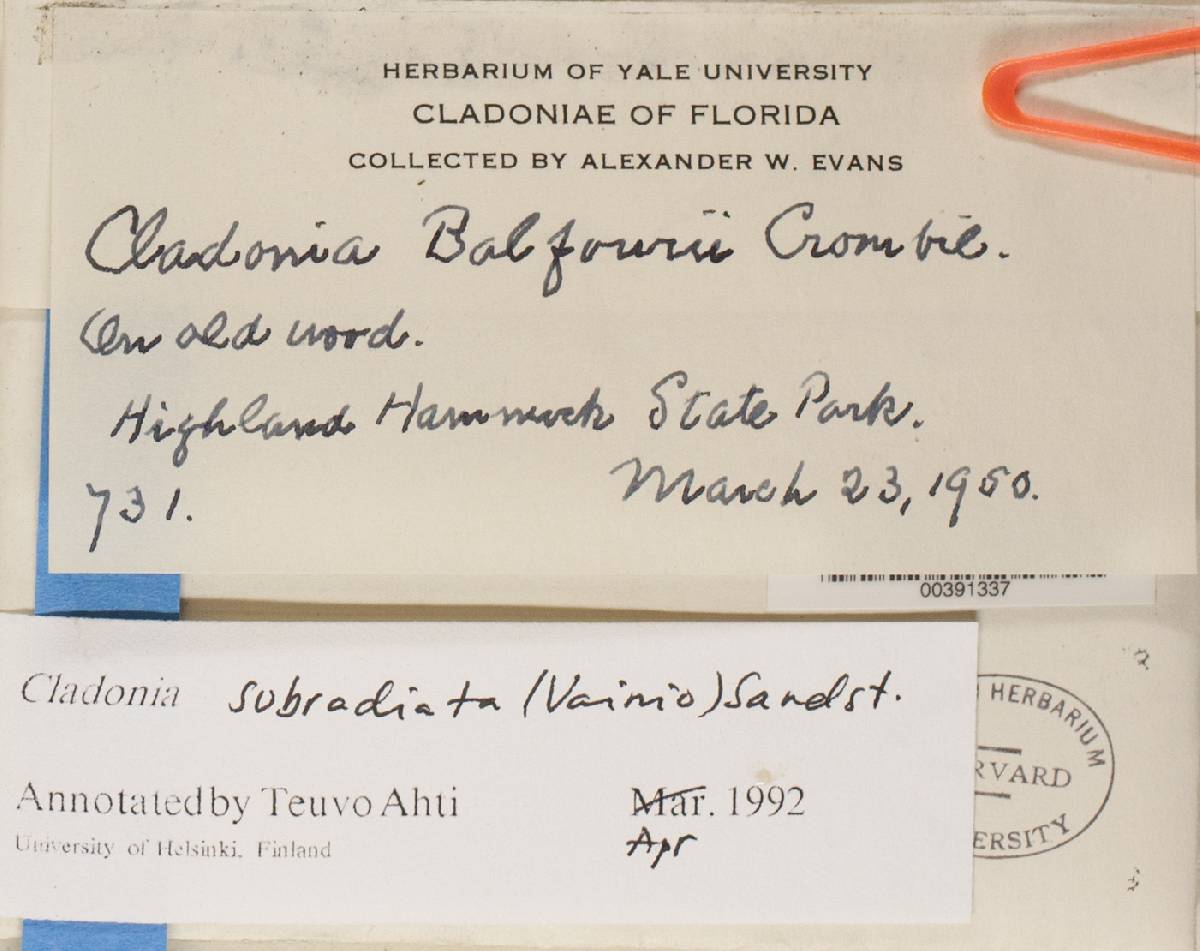 HERBARIUM OF YALE UNIVERSITY
CLADONIAE OF FLORIDA
COLLECTED BY ALEXANDER W. EVANS
Cladonia Balfourii Crombie.
On old wood.
Highland Hammock State Park.
731. March 23, 1950.
00391337
Cladonia subradiata (Vainio) Sandst.
Annotated by Teuvo Ahti Mar. 1992
University of Helsinki, Finland Apr
HERBARIUM
RVARD
ERSITY